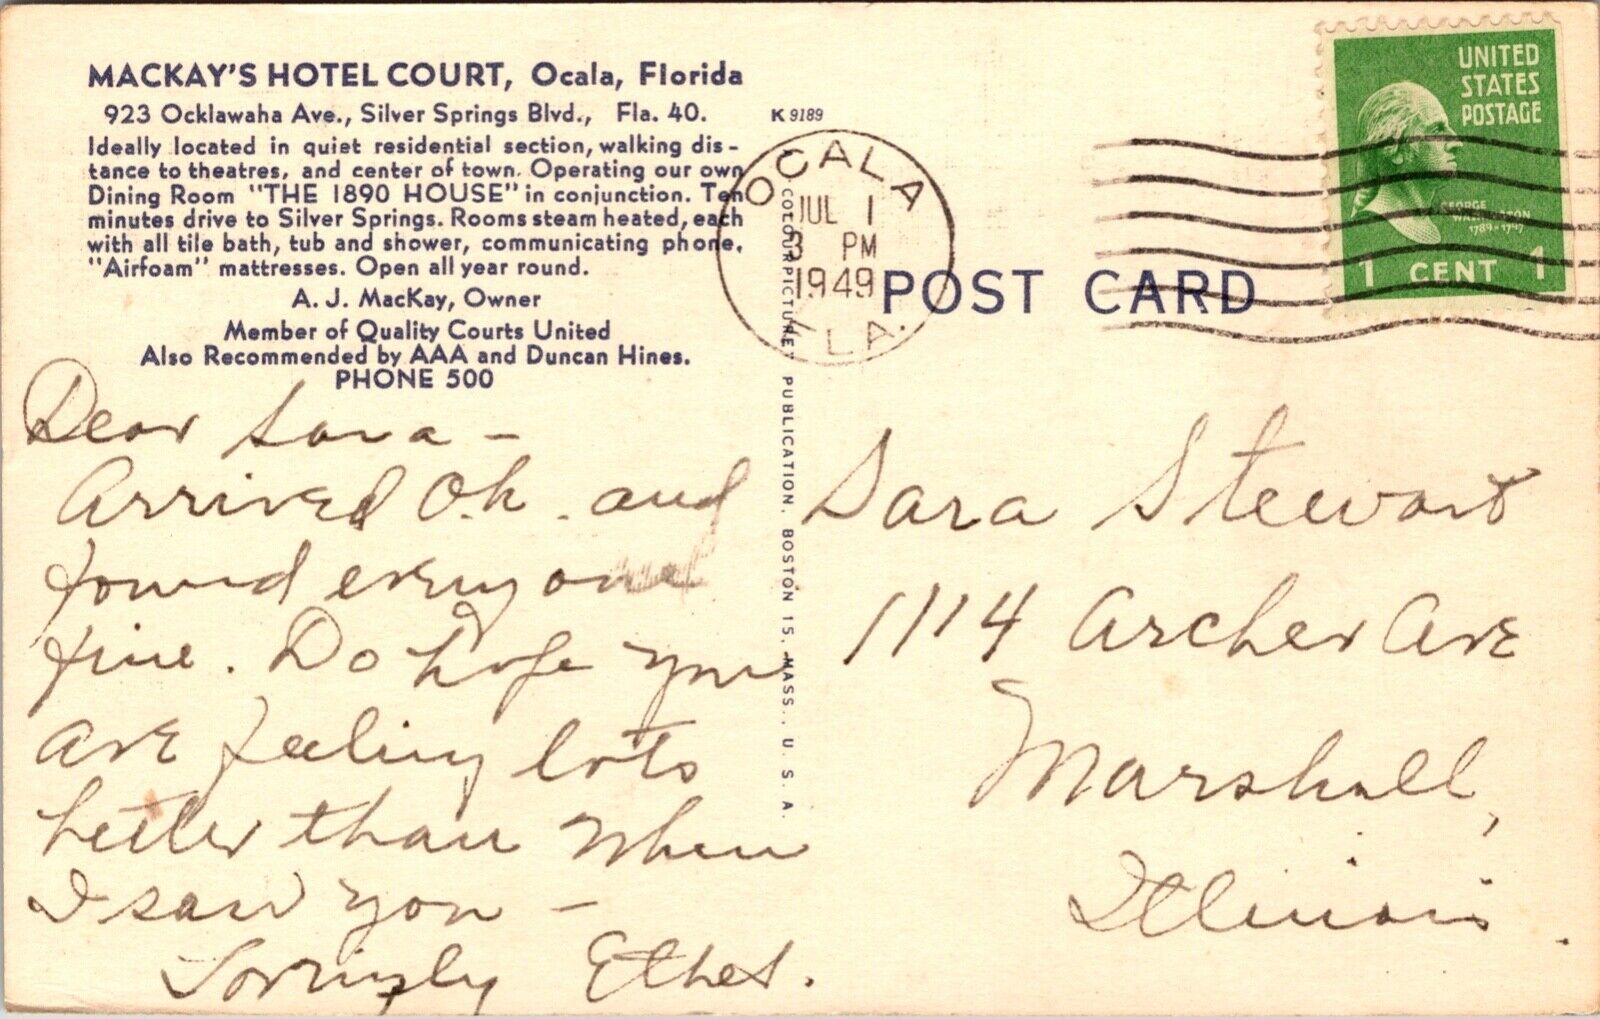 MACKAY'S HOTEL COURT, Ocala, Florida
923 Ocklawaha Ave., Silver Springs Blvd., Fla. 40.
K 9189
Ideally located in quiet residential section, walking dis-
tance to theatres, and center of town. Operating our own
Dining Room "THE 1890 HOUSE" in conjunction. Ten
minutes drive to Silver Springs. Rooms steam heated, each
with all tile bath, tub and shower, communicating phone,
"Airfoam" mattresses. Open all year round.
A. J. MacKay, Owner
Member of Quality Courts United
Also Recommended by AAA and Duncan Hines.
PHONE 500
Dear Sara –
Arrived O.k. and
found everyone
fine. Do hope you
are feeling lots
better than when
I saw you –
Lovingly Ethel.
COLOURPICTURE PUBLICATION, BOSTON 15, MASS., U. S. A.
OCALA
JUL 1
3 PM
1949
FLA.
POST CARD
UNITED
STATES
POSTAGE
GEORGE
WASHINGTON
1789-1797
1 CENT 1
Sara Stewart
1114 Archer Ave
Marshall,
Illinois.